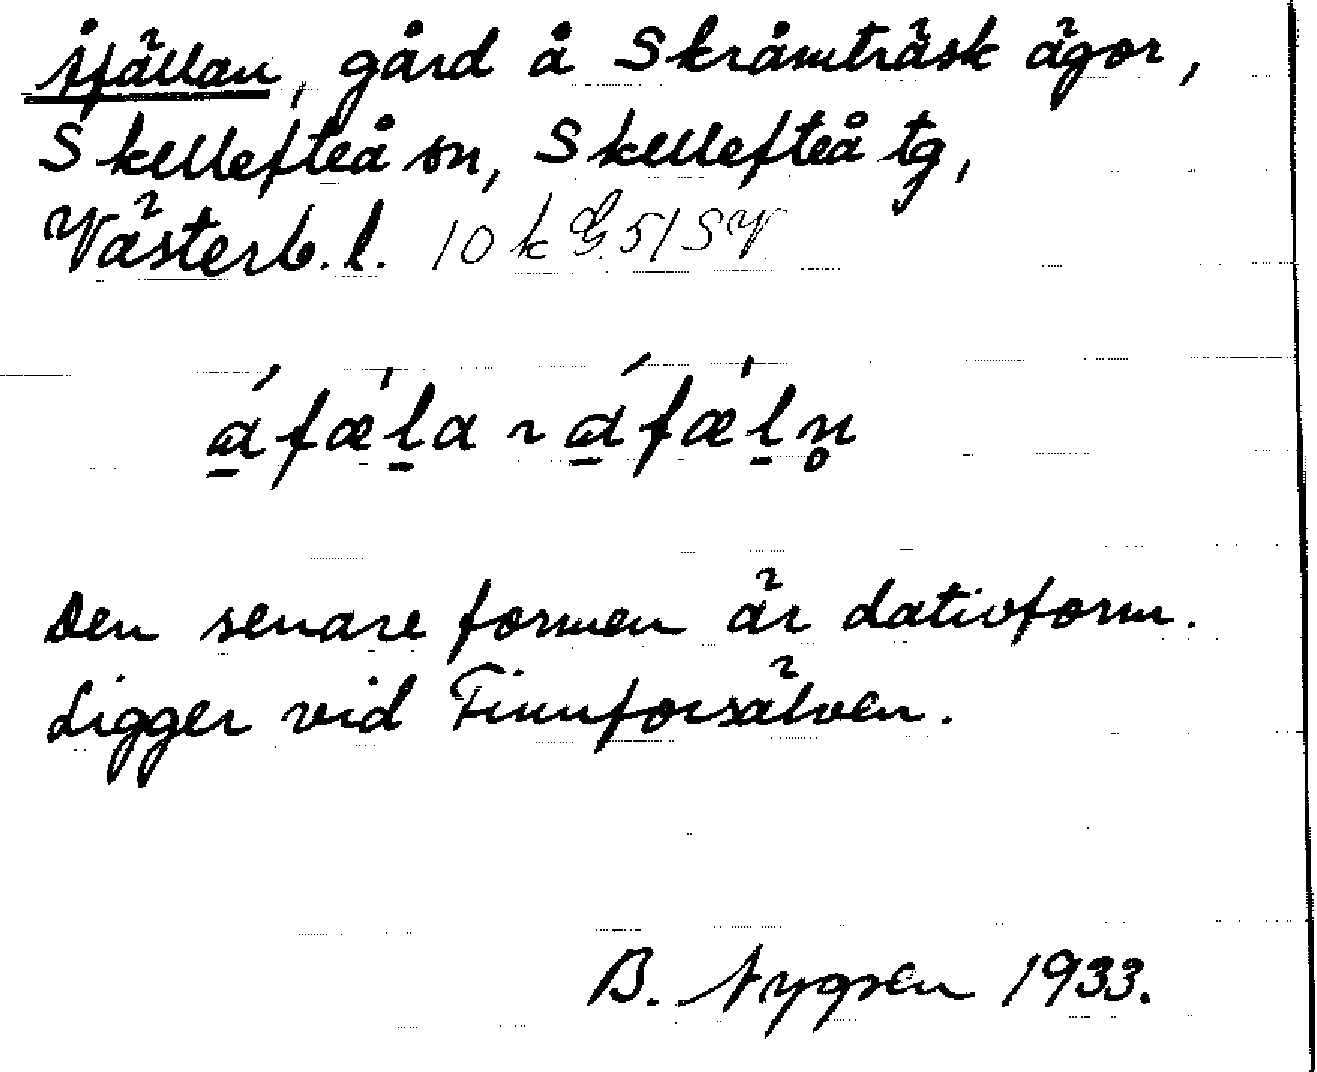 Åfjällan, gård å Skråmträsk ägor,
Skellefteå sn, Skellefteå tg,
Västerb. l. 10k G5/SV
á̱fæ̍ḻa ~ á̱fæ̍ḻn̥
Den senare formen är dativform.
Ligger vid Finnforsälven.
B. Nygren 1933.